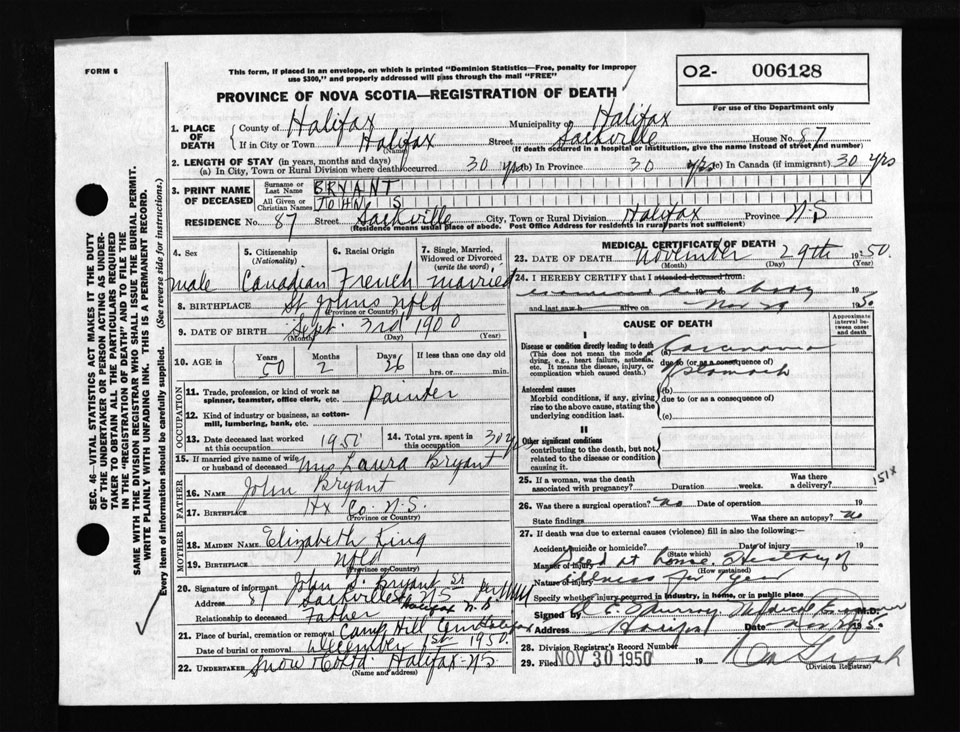 FORM 6
This form, if placed in an envelope, on which is printed "Dominion Statistics—Free, penalty for improper
use $300," and properly addressed will pass through the mail "FREE"
O2- 006128
For use of the Department only
PROVINCE OF NOVA SCOTIA—REGISTRATION OF DEATH
1. PLACE OF DEATH { County of Halifax Municipality of Halifax
If in City or Town Halifax (Name) Street Sackville House No. 87
(If death occurred in a hospital or institution, give the name instead of street and number)
2. LENGTH OF STAY (in years, months and days)
(a) In City, Town or Rural Division where death occurred 30 yrs (b) In Province 30 yrs (c) In Canada (if immigrant) 30 yrs
3. PRINT NAME OF DECEASED { Surname or Last Name BRYANT
All Given or Christian Names JOHN S
RESIDENCE No. 87 Street Sackville City, Town or Rural Division Halifax Province N.S
(Residence means usual place of abode. Post Office Address for residents in rural parts not sufficient)
4. Sex 5. Citizenship (Nationality) 6. Racial Origin 7. Single, Married, Widowed or Divorced (write the word)
male Canadian French married
8. BIRTHPLACE St Johns Nfld
(Province or Country)
9. DATE OF BIRTH Sept. 3rd 1900
(Month) (Day) (Year)
10. AGE in Years 50 Months 2 Days 26 If less than one day old
hrs. or min.
OCCUPATION
11. Trade, profession, or kind of work as spinner, teamster, office clerk, etc. Painter
12. Kind of industry or business, as cotton-mill, lumbering, bank, etc.
13. Date deceased last worked at this occupation 1950 14. Total yrs. spent in this occupation 30 yrs
15. If married give name of wife or husband of deceased Mrs Laura Bryant
FATHER
16. NAME John Bryant
17. BIRTHPLACE Hx Co. N.S.
(Province or Country)
MOTHER
18. MAIDEN NAME Elizabeth King
19. BIRTHPLACE Nfld
(Province or Country)
20. Signature of informant John S. Bryant Sr
Address 87 Sackville St Halifax N.S
Relationship to deceased Father
21. Place of burial, cremation or removal Camp Hill Halifax
Date of burial or removal December 1st 1950
22. UNDERTAKER Snow Co Ltd. Halifax N.S
(Name and address)
MEDICAL CERTIFICATE OF DEATH
23. DATE OF DEATH November 29th 1950
(Month) (Day) (Year)
24. I HEREBY CERTIFY that I attended deceased from:
body
and last saw h alive on Nov 29 1950
CAUSE OF DEATH
Approximate interval between onset and death
I
Disease or condition directly leading to death
(This does not mean the mode of dying, e.g., heart failure, asthenia, etc. It means the disease, injury, or complication which caused death.)
(a) Carcinoma
due to (or as a consequence of)
Stomach
Antecedent causes
Morbid conditions, if any, giving rise to the above cause, stating the underlying condition last.
(b)
due to (or as a consequence of)
(c)
II
Other significant conditions
contributing to the death, but not related to the disease or condition causing it.
25. If a woman, was the death associated with pregnancy? Duration weeks. Was there a delivery?
151X
26. Was there a surgical operation? no Date of operation 19
State findings Was there an autopsy? no
27. If death was due to external causes (violence) fill in also the following:
Accident, suicide or homicide? (State which) Date of injury 19
Manner of injury Died at home. History of
(How sustained)
Nature of injury illness for 1 year
Specify whether injury occurred in industry, in home, or in public place
Signed by Medical Examiner M.D.
Address Halifax Date Nov 29 1950
28. Division Registrar's Record Number
29. Filed NOV 30 1950 19
(Division Registrar)
SEC. 46—VITAL STATISTICS ACT MAKES IT THE DUTY
OF THE UNDERTAKER OR PERSON ACTING AS UNDER-
TAKER TO OBTAIN ALL THE PARTICULARS REQUIRED
IN THE "REGISTRATION OF DEATH" AND TO FILE THE
SAME WITH THE DIVISION REGISTRAR WHO SHALL ISSUE THE BURIAL PERMIT.
WRITE PLAINLY WITH UNFADING INK. THIS IS A PERMANENT RECORD.
Every item of information should be carefully supplied. (See reverse side for instructions.)